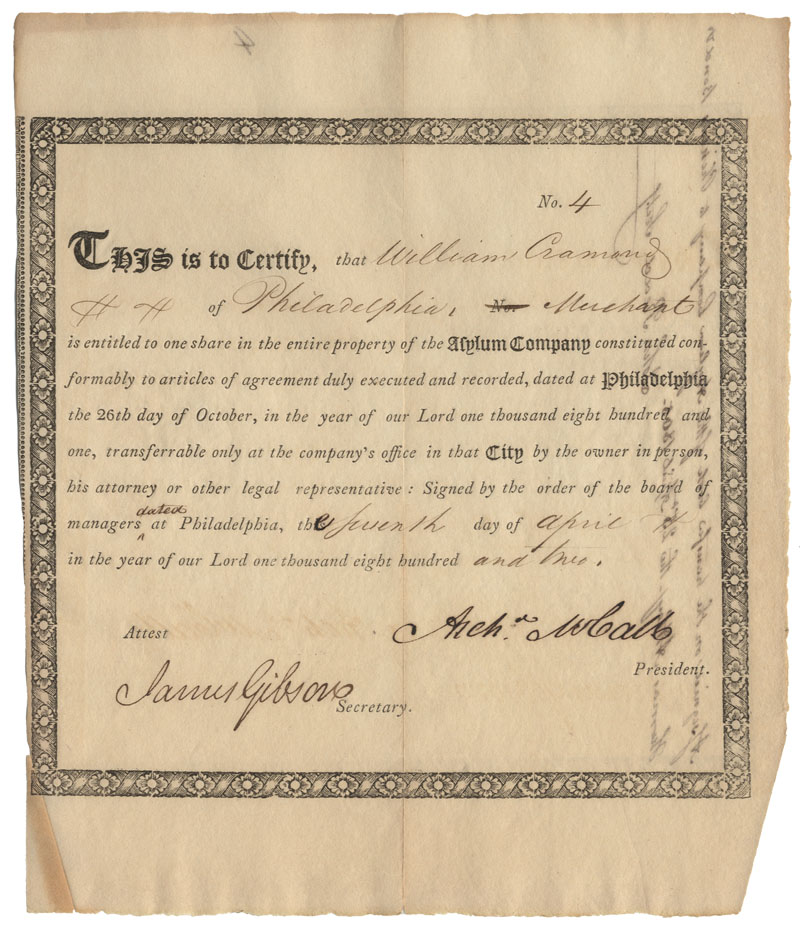 No. 4
THIS is to Certify, that William Cramond
of Philadelphia, No. Merchant
is entitled to one share in the entire property of the Asylum Company constituted con-
formably to articles of agreement duly executed and recorded, dated at Philadelphia
the 26th day of October, in the year of our Lord one thousand eight hundred and
one, transferrable only at the company's office in that City by the owner in person,
his attorney or other legal representative: Signed by the order of the board of
dated
managers at Philadelphia, the seventh day of april
in the year of our Lord one thousand eight hundred and two.
Attest
Archd. McCall
President.
James Gibson
Secretary.